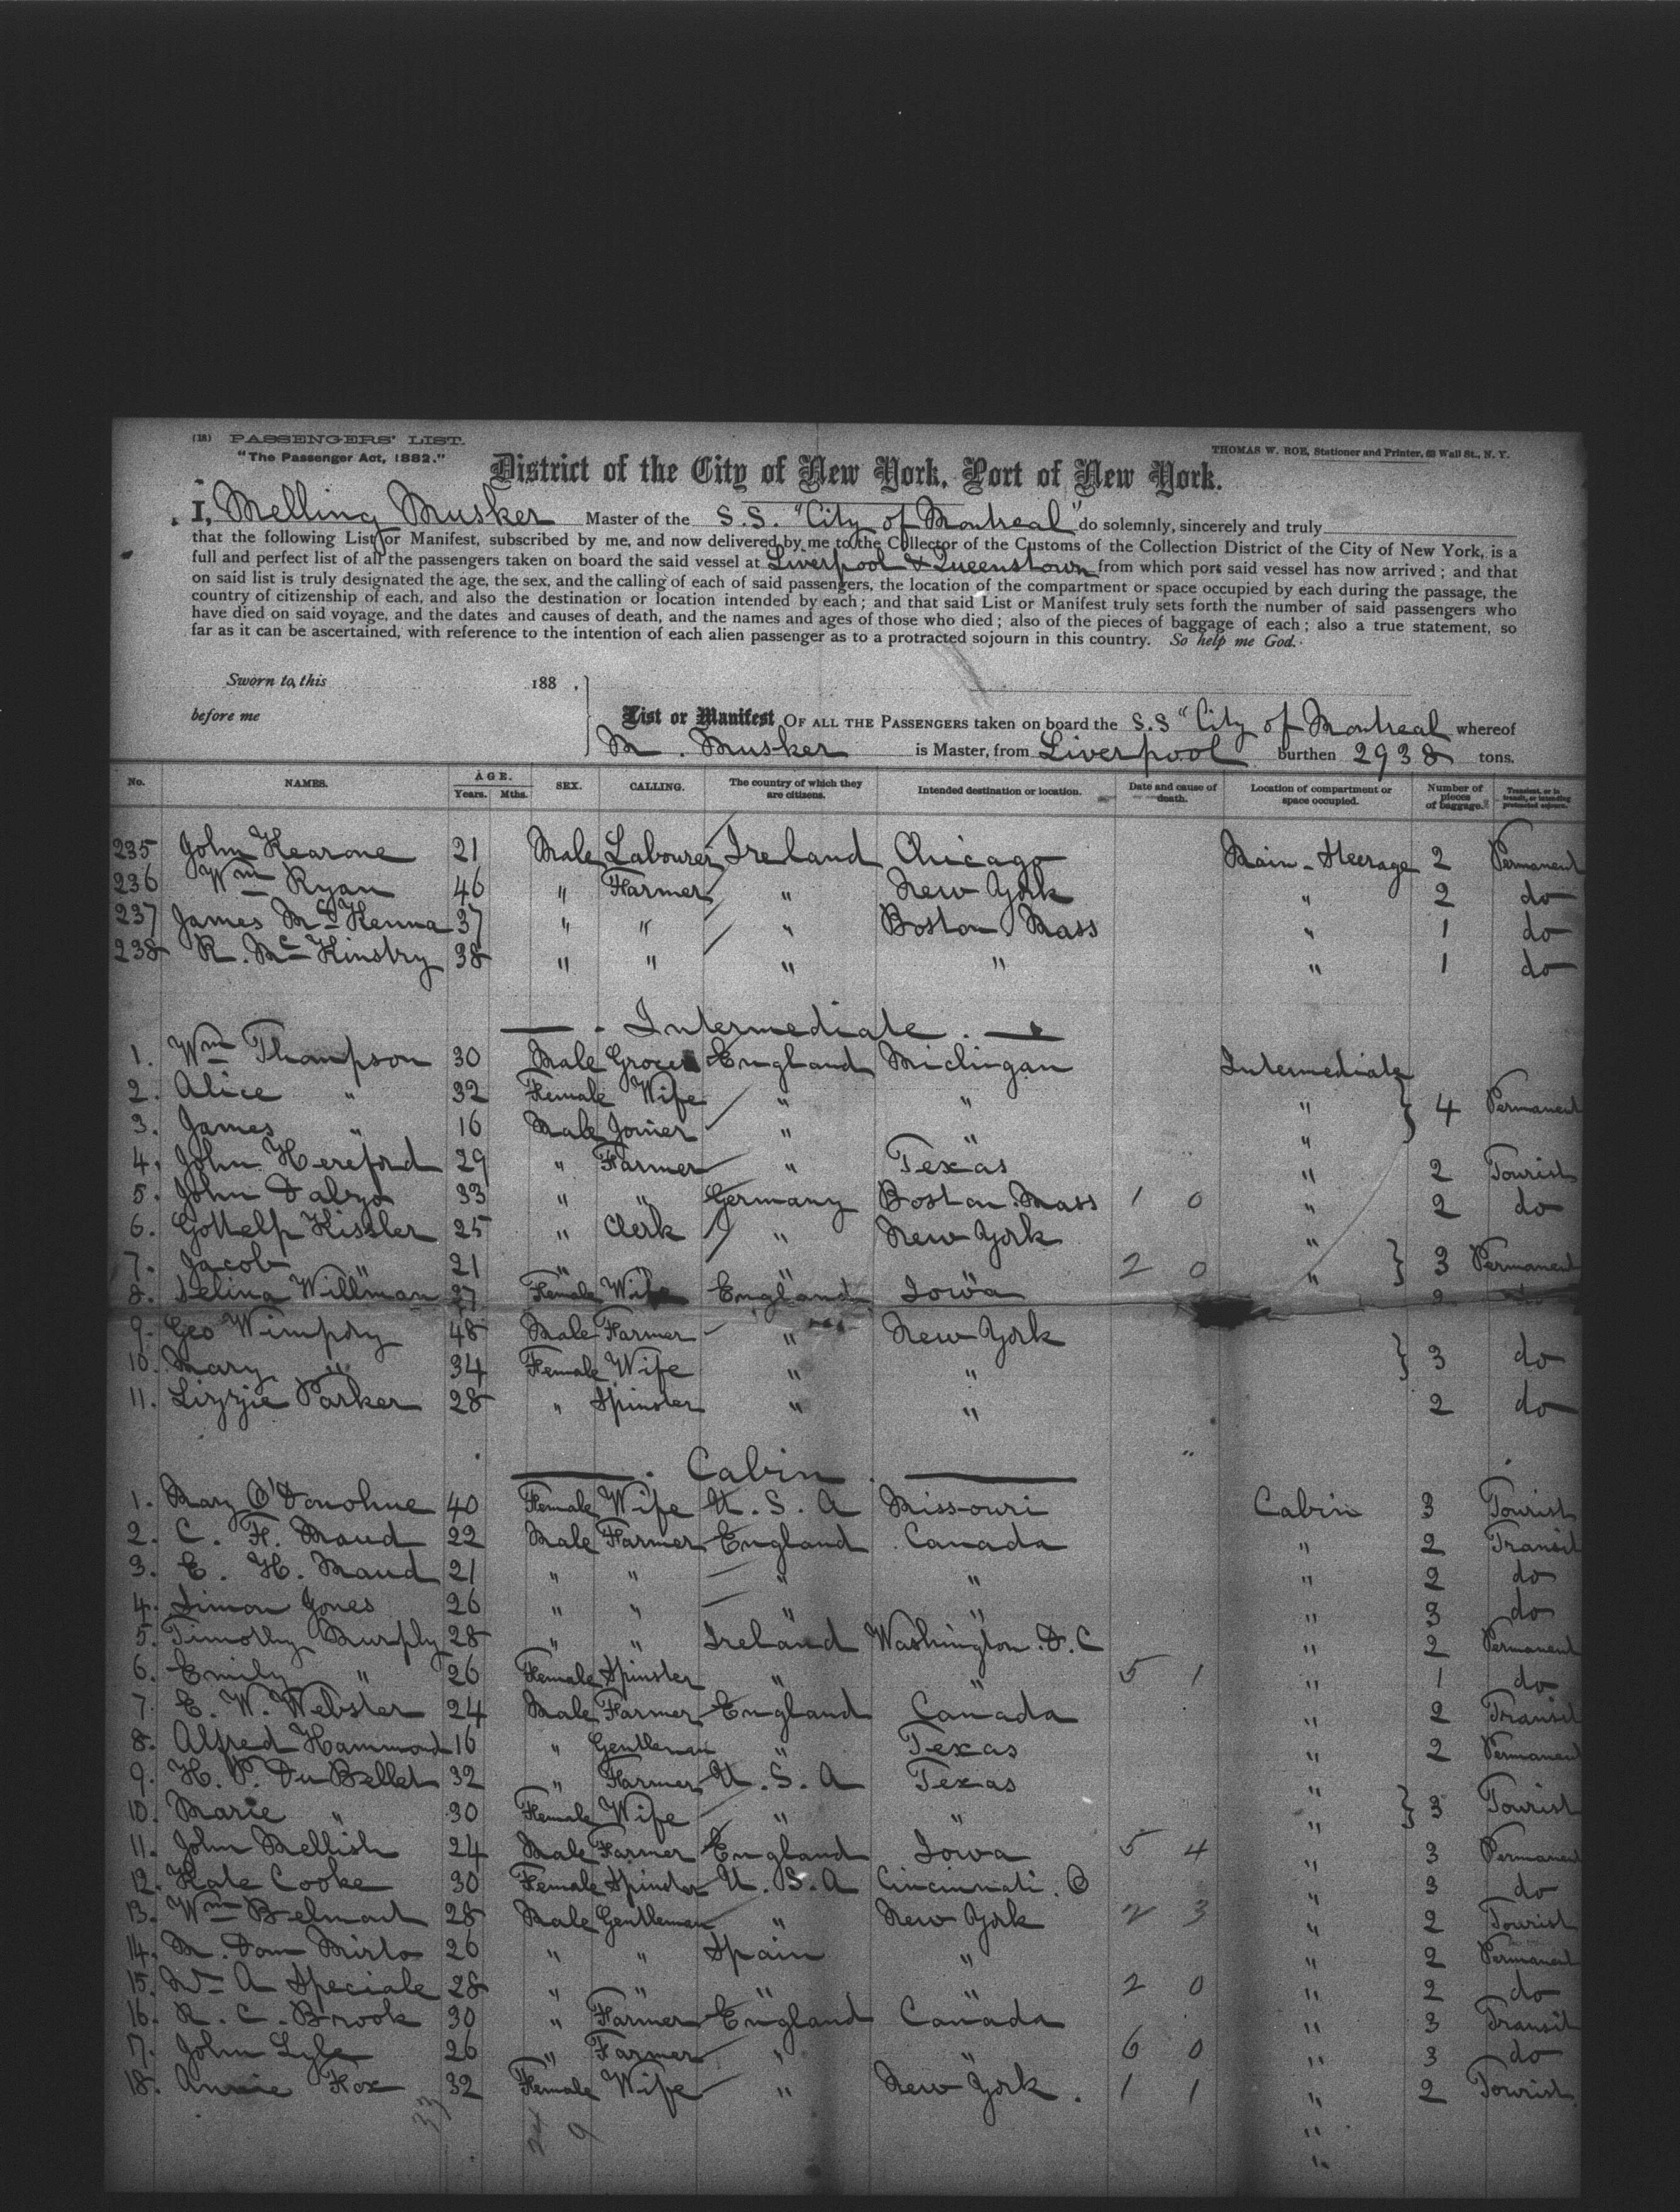 (18) PASSENGERS' LIST.
"The Passenger Act, 1882."
THOMAS W. ROE, Stationer and Printer, 63 Wall St., N. Y.
District of the City of New York, Port of New York.
I, Melling Musker Master of the S.S. "City of Montreal" do solemnly, sincerely and truly
that the following List or Manifest, subscribed by me, and now delivered by me to the Collector of the Customs of the Collection District of the City of New York, is a
full and perfect list of all the passengers taken on board the said vessel at Liverpool & Queenstown from which port said vessel has now arrived; and that
on said list is truly designated the age, the sex, and the calling of each of said passengers, the location of the compartment or space occupied by each during the passage, the
country of citizenship of each, and also the destination or location intended by each; and that said List or Manifest truly sets forth the number of said passengers who
have died on said voyage, and the dates and causes of death, and the names and ages of those who died; also of the pieces of baggage of each; also a true statement, so
far as it can be ascertained, with reference to the intention of each alien passenger as to a protracted sojourn in this country. So help me God.
Sworn to, this 188 ,
before me
List or Manifest OF ALL THE PASSENGERS taken on board the S.S "City of Montreal whereof
M. Musker is Master, from Liverpool burthen 2938 tons.
No. NAMES. AGE. Years. Mths. SEX. CALLING. The country of which they are citizens. Intended destination or location. Date and cause of death. Location of compartment or space occupied. Number of pieces of baggage. Transient, or in transit, or intending protracted sojourn.
235 John Kearone 21 Male Labourer Ireland Chicago Main-Steerage 2 Permanent
236 Wm Ryan 46 " Farmer " New York " 2 do
237 James McKenna 37 " " " Boston Mass " 1 do
238 R. McKinstry 38 " " " " " 1 do
Intermediate
1. Wm Thompson 30 Male Grocer England Michigan Intermediate
2. Alice " 32 Female Wife " " " 4 Permanent
3. James " 16 Male Joiner " " "
4. John Hereford 29 " Farmer " Texas " 2 Tourist
5. John 33 " " Germany Boston Mass 1 0 " 2 do
6. Gottelp Kissler 25 " Clerk " New York "
7. Jacob " 21 " " " " 2 0 " 3 Permanent
8. Selina Willman 27 Female Wife England Iowa 2 do
9. Geo Wimpory 48 Male Farmer " New York
10. Mary " 34 Female Wife " " 3 do
11. Lizzie Parker 28 " Spinster " " 2 do
Cabin
1. Mary O'Donohue 40 Female Wife U.S.A Missouri Cabin 3 Tourist
2. C. F. Maud 22 Male Farmer England Canada " 2 Transit
3. E. H. Maud 21 " " " " " 2 do
4. Simon Jones 26 " " " " " 3 do
5. Timothy Murphy 28 " " Ireland Washington D.C " 2 Permanent
6. Emily " 26 Female Spinster " " 5 1 " 1 do
7. E. W. Webster 24 Male Farmer England Canada " 2 Transit
8. Alfred Hammond 16 " Gentleman " Texas " 2 Permanent
9. H. P. Du Bellet 32 " Farmer U.S.A Texas "
10. Marie " 30 Female Wife " " " 3 Tourist
11. John Mellish 24 Male Farmer England Iowa 5 4 " 3 Permanent
12. Kate Cooke 30 Female Spinster U.S.A Cincinnati. O " 3 do
13. Wm Belmont 28 Male Gentleman " New York 2 3 " 2 Tourist
14. M. Dom Mirlo 26 " " Spain " " 2 Permanent
15. A Speciale 28 " " " " 2 0 " 2 do
16. R. C. Brook 30 " Farmer England Canada " 3 Transit
17. John Lyle 26 " Farmer " " 6 0 " 3 do
18. Annie Fox 32 Female Wife " New York. 1 1 " 2 Tourist
33 24 9